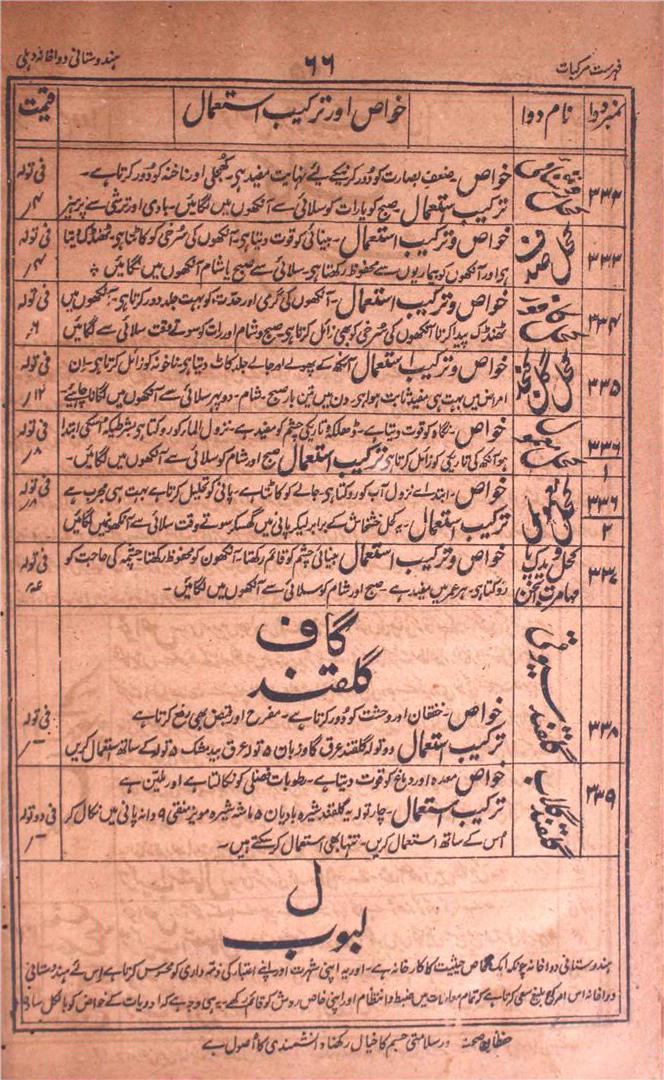 فہرست مرکبات ۶۶ ہندوستانی دواخانہ دہلی
نمبر دوا نام دوا خواص اور ترکیب استعمال قیمت
۳۳۲ خواص۔ ضعف بصارت کو دور کرنیکے لیے نہایت مفید ہی۔ کھجلی اور ناخنہ کو دور کرتا ہے۔ فی تولہ
ترکیب استعمال۔ صبح کو یا رات کو سلائی سے آنکھوں میں لگائیں۔ بادی اور ترشی سے پرہیز ۴/
۳۳۳ کحل صدف خواص و ترکیب استعمال۔ بینائی کو قوت دیتا ہی۔ آنکھوں کی سرخی کو کاٹتا ہی۔ ٹھنڈک دیتا فی تولہ
ہی اور آنکھوں کو بیماریوں سے محفوظ رکھتا ہی۔ سلائی سے صبح یا شام آنکھوں میں لگائیں ۴/
۳۳۴ کحل کافور خواص و ترکیب استعمال۔ آنکھوں کی گرمی اور حدت کو بہت جلد دور کرتا ہی۔ آنکھوں میں فی تولہ
ٹھنڈک پیدا کرتا آنکھوں کی سرخی کو بھی زائل کرتا ہی صبح و شام اور رات کو سوتے وقت سلائی سے لگائیں ۶/
۳۳۵ کحل گل کنجد خواص و ترکیب استعمال آنکھ کے پھولے اور جالے جلد کاٹ دیتا ہی۔ ناخونہ کو زائل کرتا ہی۔ ان فی تولہ
امراض میں بہت ہی مفید ثابت ہوا ہی۔ دن میں تین بار صبح۔ شام۔ دوپہر سلائی سے آنکھوں میں لگانا چاہیے۔ ۱۲/
۳۳۶/۱ خواص۔ نگاہ کو قوت دیتا ہے۔ ڈھلکہ و تاریکی چشم کو مفید ہے۔ نزول الماء کو روکتا ہی بشرطیکہ اسکی ابتدا فی تولہ
ہو آنکھ کی تاریکی کو زائل کرتا ہی ترکیب استعمال صبح اور شام کو سلائی سے آنکھوں میں لگائیں۔ ۸/
۳۳۶/۲ خواص۔ ابتدائے نزول آب کو روکتا ہی۔ جالے کو کاٹتا ہے۔ پانی کو تحلیل کرتا ہے بہت ہی مجرب ہے فی تولہ
ترکیب استعمال۔ یہ کحل خشخاش کے برابر لیکر پانی میں گھسکر سوتے وقت سلائی سے آنکھ میں لگائیں ۸/
۳۳۷ خواص و ترکیب استعمال بینائی چشم کو قائم رکھتا۔ آنکھوں کو محفوظ رکھتا چشمہ کی حاجت کو فی تولہ
روکتا ہی۔ ہر عمر میں مفید ہے۔ صبح اور شام کو سلائی سے آنکھوں میں لگائیں۔
گاف
گلقند
۳۳۸ گلقند سیوتی خواص۔ خفقان اور وحشت کو دور کرتا ہے۔ مفرح اور قبض بھی رفع کرتا ہے فی تولہ
ترکیب استعمال دو تولہ گلقند عرق گاوزبان ۵ تولہ عرق بیدمشک ۵ تولہ کے ساتھ استعمال کریں
۳۳۹ گلقند گلاب خواص۔ معدہ اور دماغ کو قوت دیتا ہے۔ رطوبات فضلی کو نکالتا ہے اور ملین ہے
ترکیب استعمال۔ چار تولہ یہ گلقند شیرہ بادیان ۵ ماشہ شیرہ مویز منقی ۹ دانہ پانی میں نکال کر فی دو تولہ
اُس کے ساتھ استعمال کریں۔ تنہا بھی استعمال کر سکتے ہیں۔
ل
لبوب
ہندوستانی دواخانہ چونکہ ایک خاص حیثیت کا کارخانہ ہے۔ اور یہ اپنی شہرت اور اپنے اعتبار کی ذمہ داری کو محسوس کرتا ہے اس لئے ہندوستانی
دواخانہ اس امر کی بلیغ سعی کرتا ہے کہ تمام معاملات میں ضبط و انتظام اور اپنی خاص روش کو قائم رکھے۔ یہی وجہ ہے کہ ادویات کے خواص کو بالکل
حفظان صحت اور سلامتی جسم کا خیال رکھنا دانشمندی کا اصول ہے